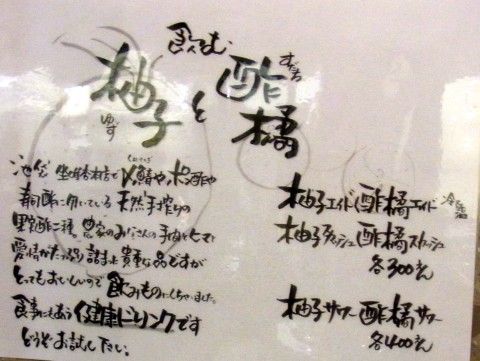 飲む
柚子と酢橘
ゆず
すだち
〆鯖やポン酢や
寿司酢に用いている天然手搾りの
愛情がたっぷり詰まった貴重な品ですが
とってもおいしいので飲みものにしちゃいました
食事にもあう健康ドリンクです
どうぞお試し下さい。
柚子エイド 酢橘エイド
柚子スカッシュ 酢橘スカッシュ
各300えん
柚子サワー 酢橘サワー
各400えん